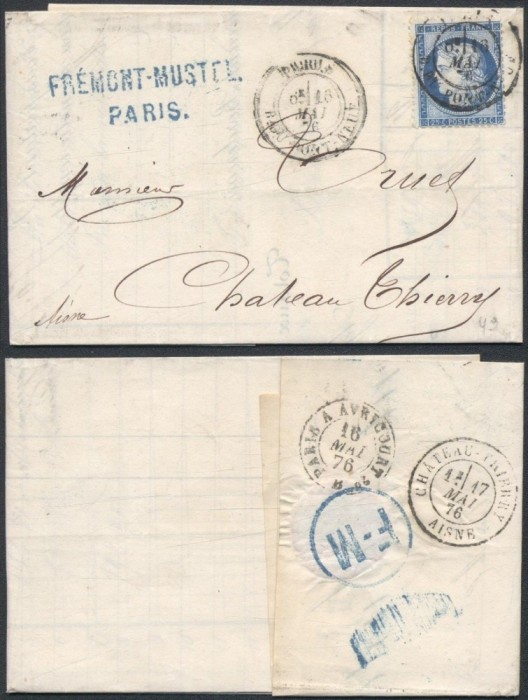 FRÉMONT-MUSTEL.
PARIS.
PARIS
6E 16
MAI
76
R. DU PONT-NEUF
REPUB. FRANC.
25 C. POSTES 25 C.
MAI
Monsieur Truet
Chateau Thierry
Aisne
49
PARIS A AVRICOURT
16
MAI
76
CHATEAU-THIERRY
1E 17
MAI
76
AISNE
F-M